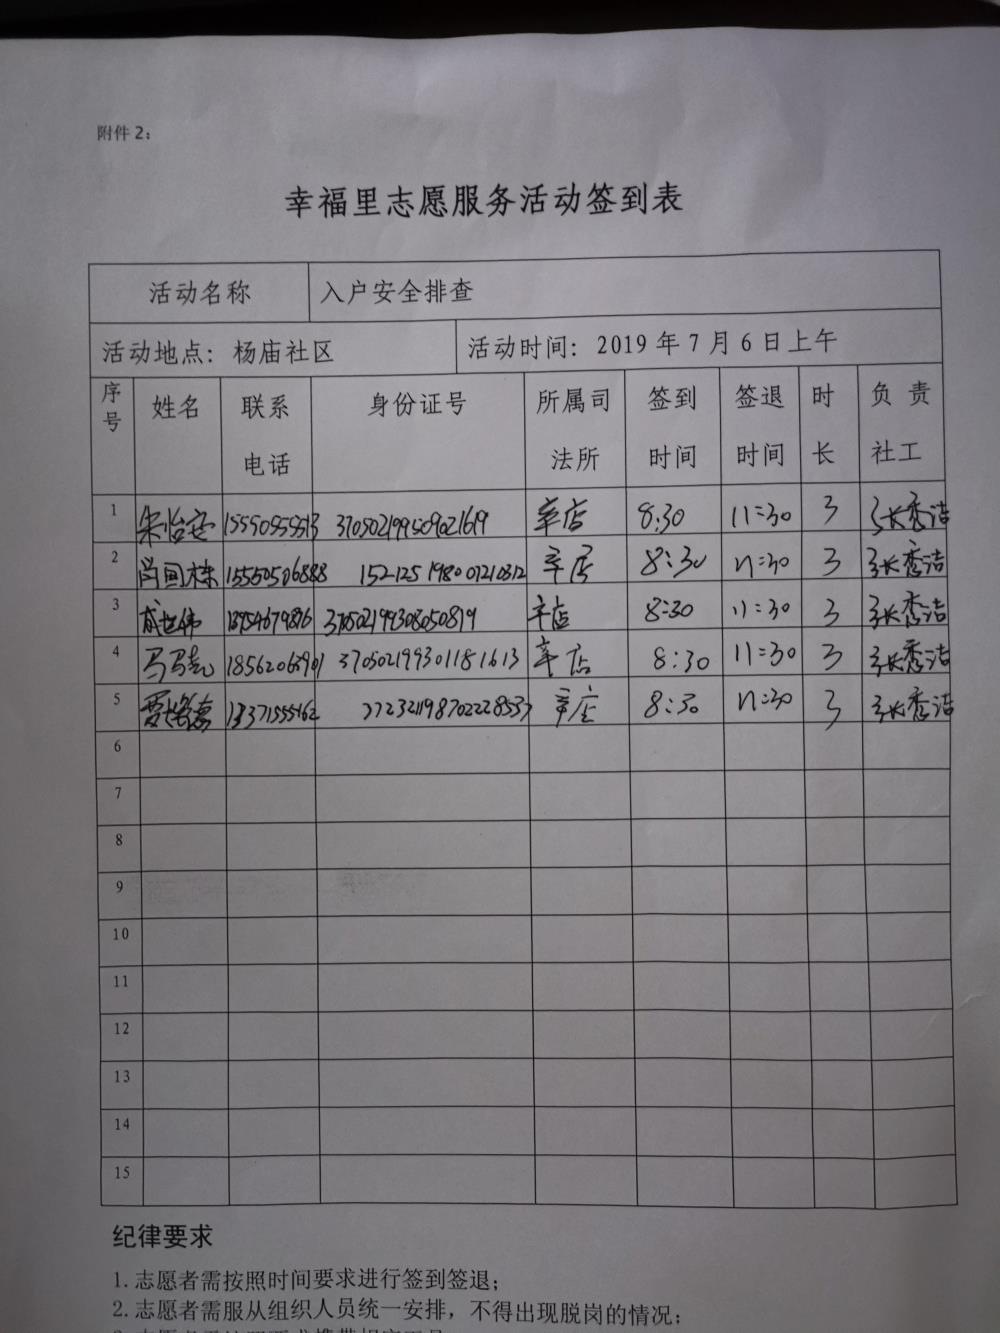 附件2：
幸福里志愿服务活动签到表
活动名称 入户安全排查
活动地点：杨庙社区 活动时间：2019年7月6日上午
序号 姓名 联系电话 身份证号 所属司法所 签到时间 签退时间 时长 负责社工
1 朱怡安 15550955513 370502199509021619 辛店 8:30 11:30 3 张秀洁
2 尚国栋 15550506888 152125198007210312 辛店 8:30 11:30 3 张秀洁
3 成世伟 370502199308050819 辛店 8:30 11:30 3 张秀洁
4 18562063901 370502199301181613 辛店 8:30 11:30 3 张秀洁
5 13371555162 辛店 8:30 11:30 3 张秀洁
6
7
8
9
10
11
12
13
14
15
纪律要求
1.志愿者需按照时间要求进行签到签退；
2.志愿者需服从组织人员统一安排，不得出现脱岗的情况；